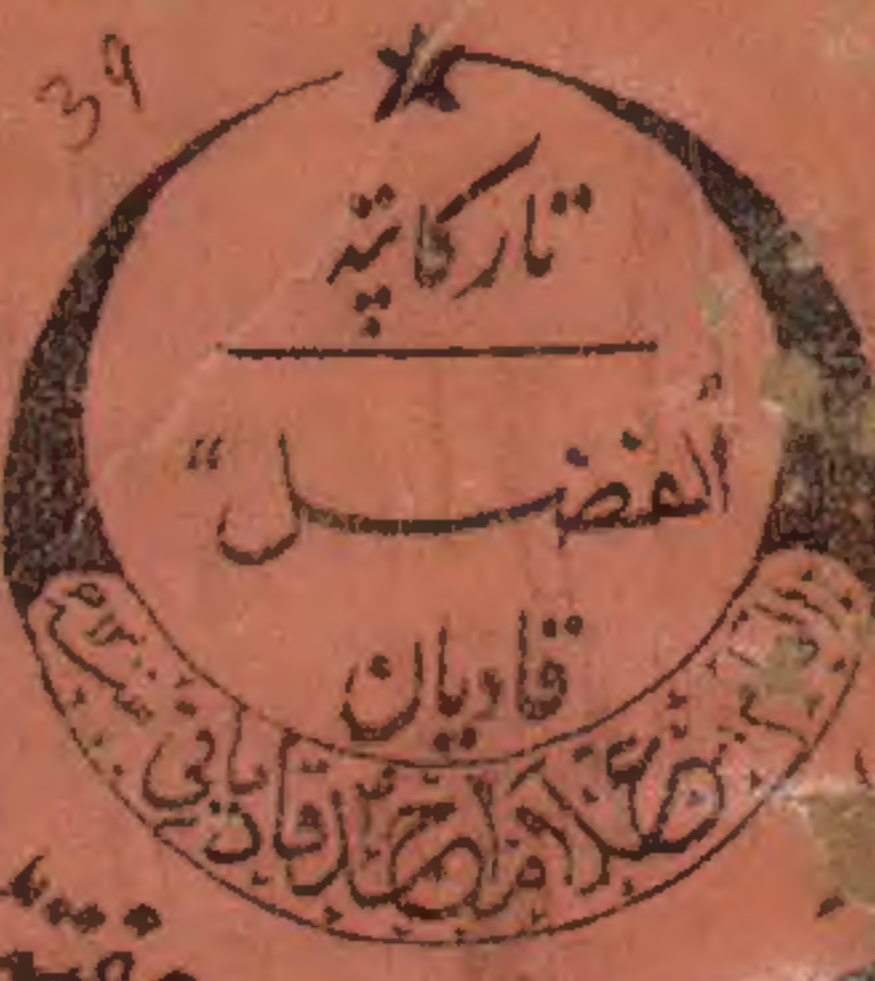 39
تار کا پتہ
"الفضل"
قادیان
غلام احمد قادیانی